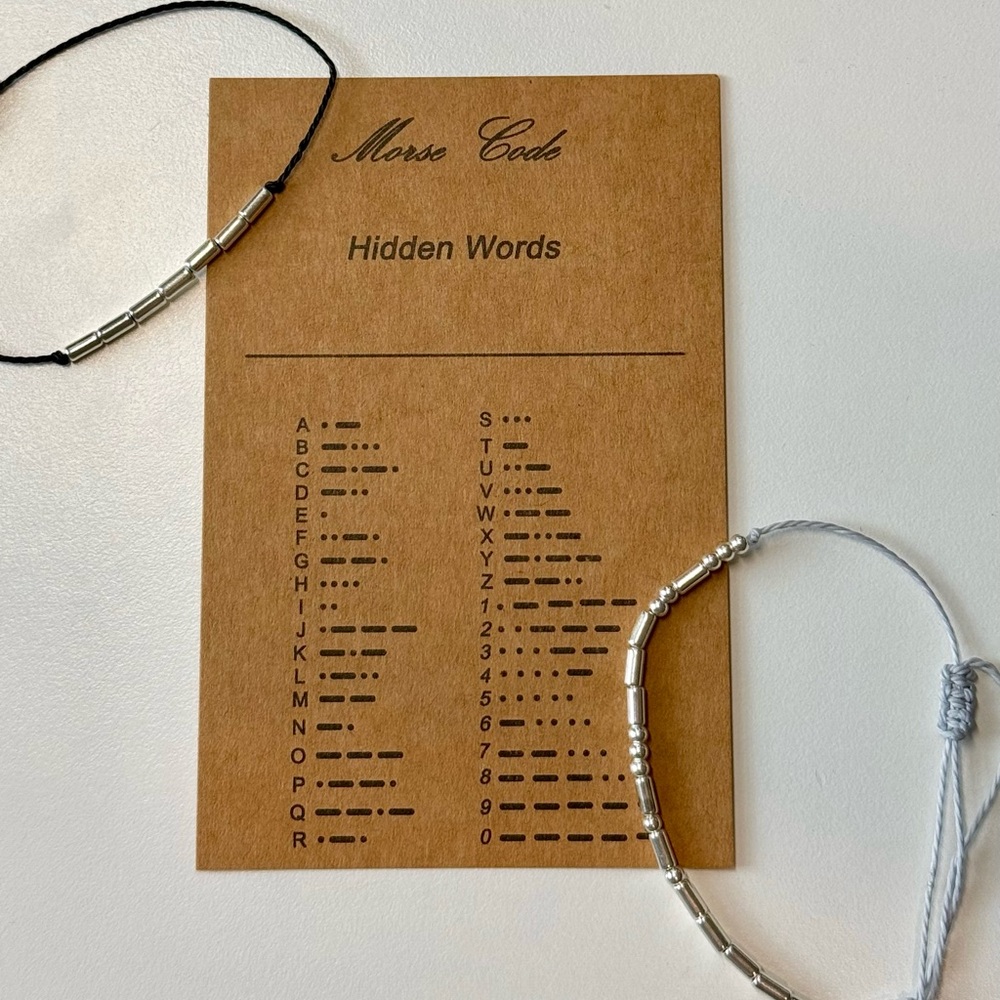 Morse Code
Hidden Words
A •—
B —•••
C —•—•
D —••
E •
F ••—•
G ——•
H ••••
I ••
J •———
K —•—
L •—••
M ——
N —•
O ———
P •——•
Q ——•—
R •—•
S •••
T —
U ••—
V •••—
W •——
X —••—
Y —•——
Z ——••
1 •————
2 ••———
3 •••——
4 ••••—
5 •••••
6 —••••
7 ——•••
8 ———••
9 ————
0 —————